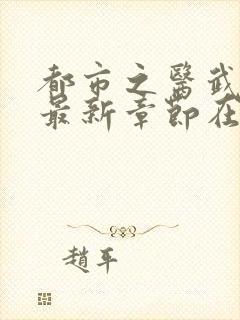 都市之醫武
最新章節在
趙平